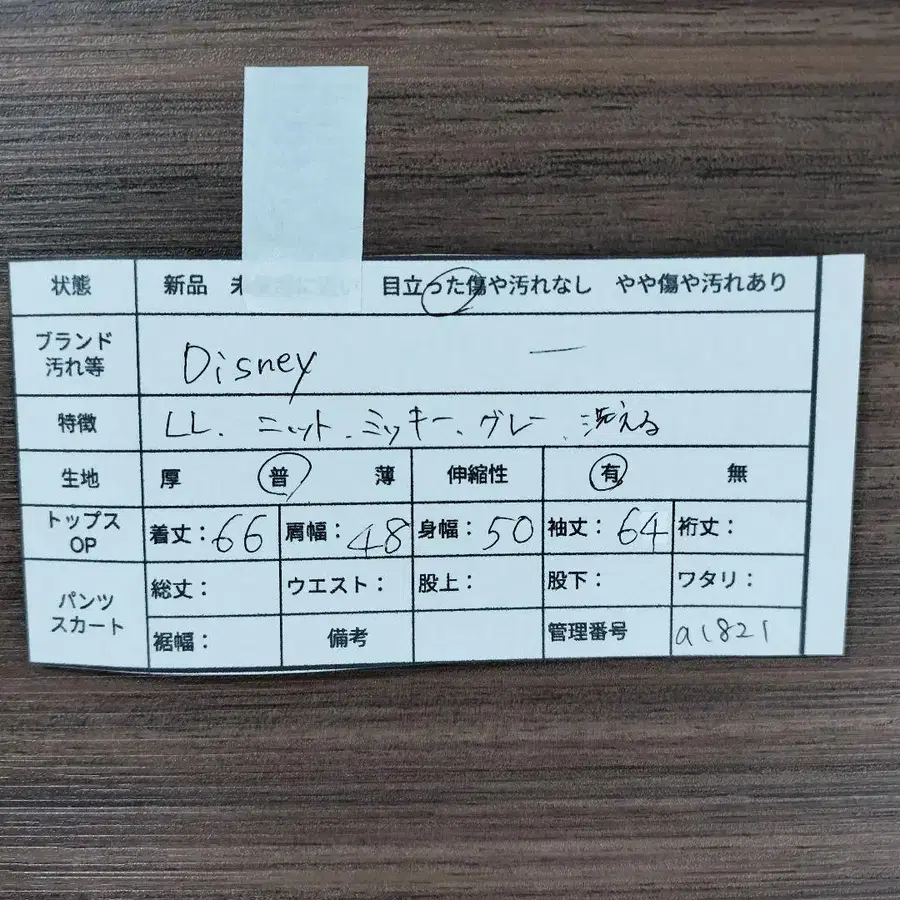 状態 新品 未 目立った傷や汚れなし やや傷や汚れあり
ブランド
汚れ等 Disney ー
特徴 LL、ニット、ミッキー、グレー、洗える
生地 厚 普 薄 伸縮性 有 無
トップス
OP 着丈：66 肩幅：48 身幅：50 袖丈：64 裄丈：
パンツ
スカート 総丈： ウエスト： 股上： 股下： ワタリ：
裾幅： 備考 管理番号 a1821